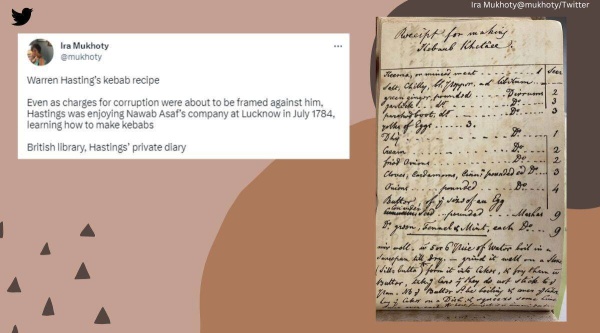 Ira Mukhoty@mukhoty/Twitter
Ira Mukhoty
@mukhoty
Warren Hasting's kebab recipe
Even as charges for corruption were about to be framed against him,
Hastings was enjoying Nawab Asaf's company at Lucknow in July 1784,
learning how to make kebabs
British library, Hastings' private diary
Receipt for making
Kebaub Khetāee
Keema, or minced meat 1 Seer
Salt, Chilly, bl. Pepper, ad libitum
green ginger, pounded Do 2
do 3
yolks of Eggs 3.
Dhy Do 1
Cream Do 2
fried Onions Do 2
Cloves, Cardamoms, pounded ea Do 3
Onions pounded Do 4
Butter, of ye size of an Egg
pounded Mashas 9
Do green, Fennel & Mint, each Do 9
mix well. in 5 or 6 of Water boil in a
Saucepan till dry. grind it well on a Stone
form it into Cakes, & fry them in
Butter, they do not stick to ye
Pan.